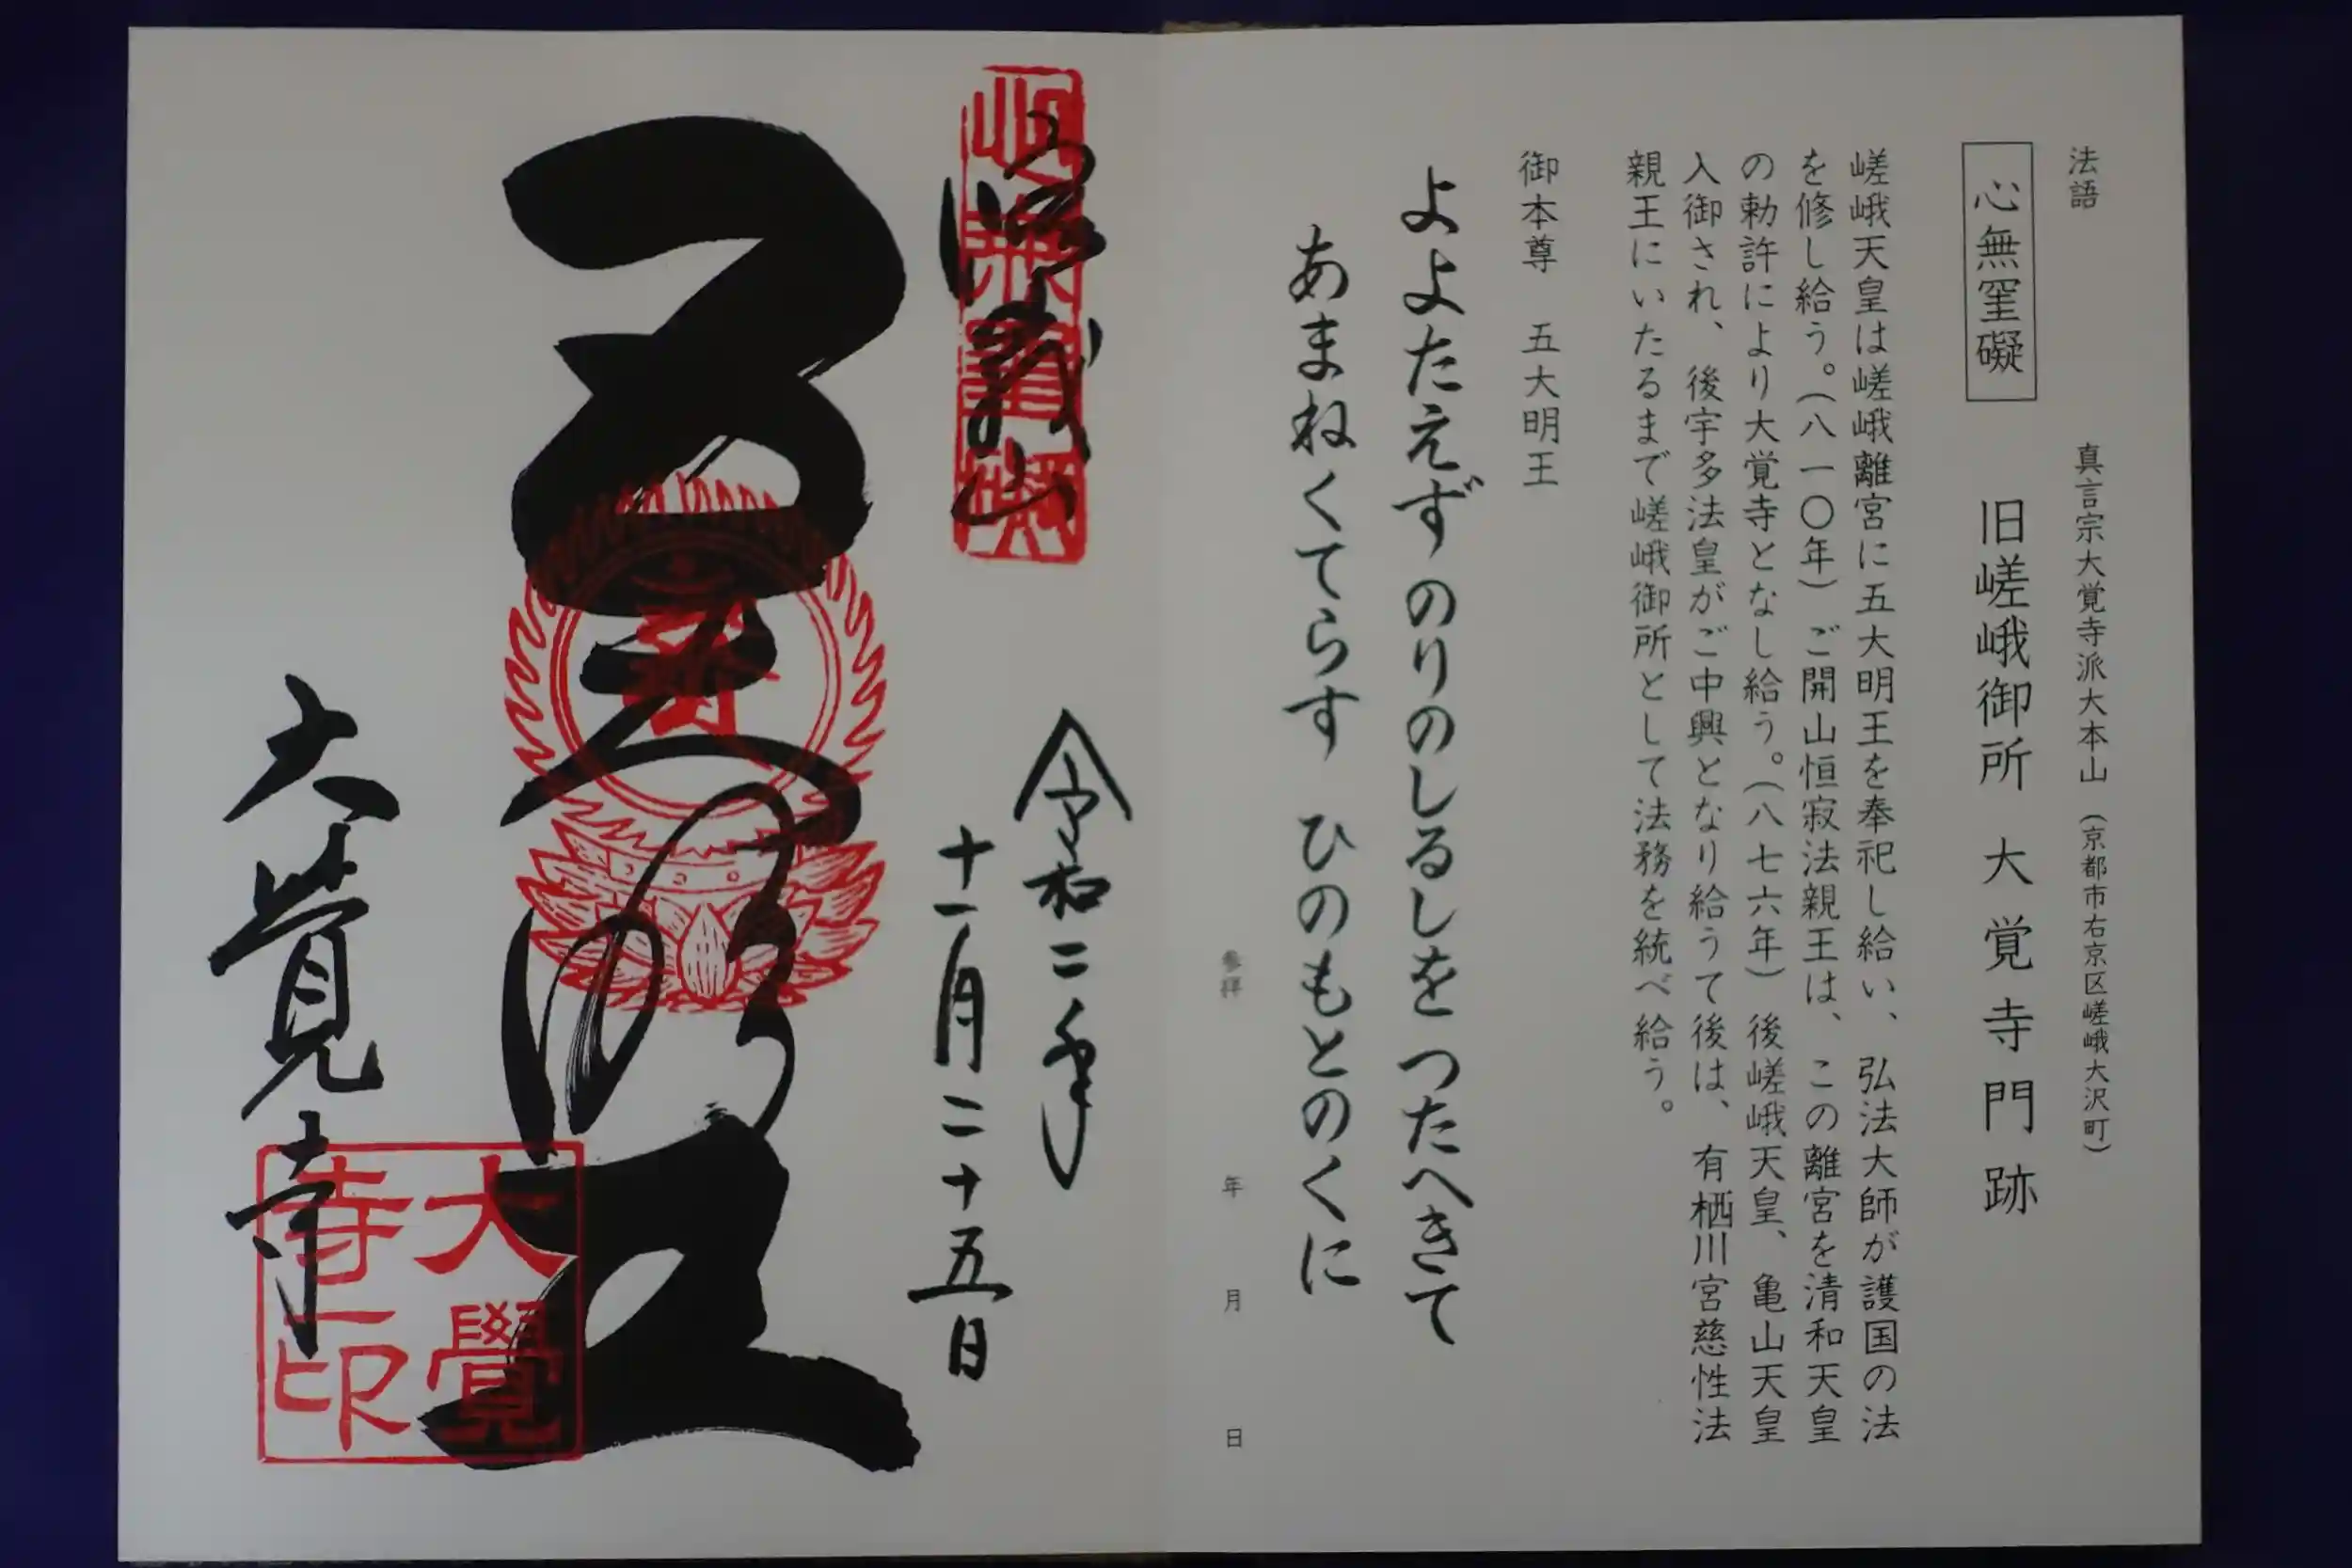 法語
真言宗大覚寺派大本山（京都市右京区嵯峨大沢町）
心無罣礙
旧嵯峨御所 大覚寺門跡
嵯峨天皇は嵯峨離宮に五大明王を奉祀し給い、弘法大師が護国の法
を修し給う。（八一〇年）ご開山恒寂法親王は、この離宮を清和天皇
の勅許により大覚寺となし給う。（八七六年）後嵯峨天皇、亀山天皇
入御され、後宇多法皇がご中興となり給うて後は、有栖川宮慈性法
親王にいたるまで嵯峨御所として法務を統べ給う。
御本尊 五大明王
よよたえず のりのしるしを つたへきて
あまねくてらす ひのもとのくに
参拝 年 月 日
心無罣礙
嵯峨山
令和二年
十一月二十五日
五大明王
大覚寺
大覺寺印